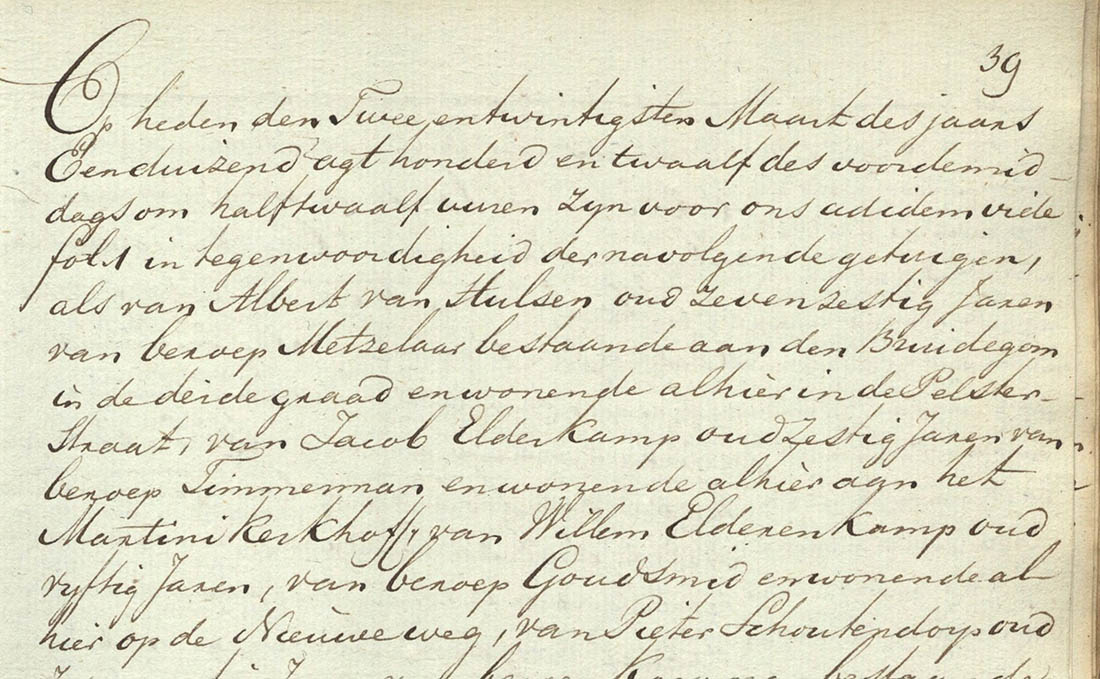 39
Op heden den Twee entwintigsten Maart des jaars
Eenduizend agt honderd en twaalf des voordemid-
dags om half twaalf uuren zyn voor ons ad idem vide
fol. 1 in tegenwoordigheid der navolgende getuigen,
als van Albert van Hulsen oud zeven zestig Jaren
van beroep Metzelaar bestaande aan den Bruidegom
in de derde graad en wonende alhier in de Pelster-
Straat, van Jacob Elderkamp oud Zestig Jaren van
beroep Timmerman en wonende alhier aan het
Martini Kerkhoff, van Willem Elderenkamp oud
vyftig Jaren, van beroep Goudsmid en wonende al-
hier op de Nieuwe weg, van Pieter Schoutendorp oud